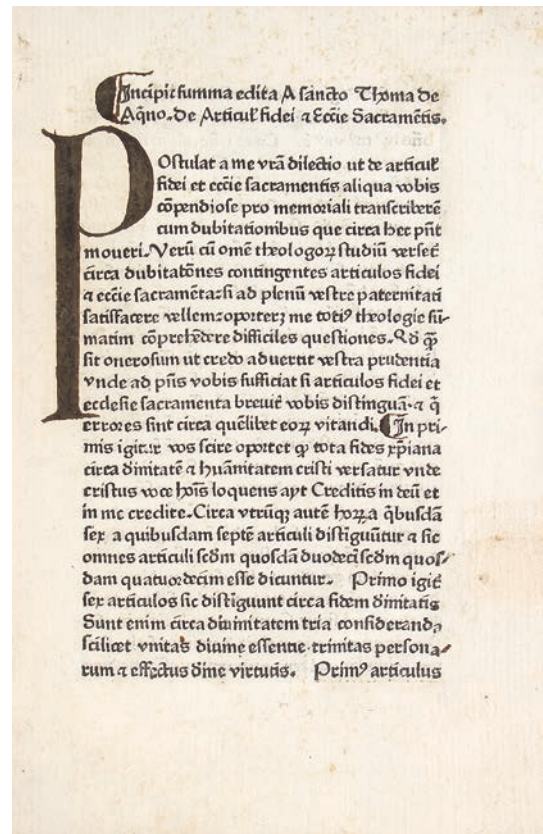 Incipit summa edita A sancto Thoma de
Aq̃no. De Articul' fidei ⁊ Ecc̃ie Sacramẽtis.
POstulat a me vr̃a dilectio ut de articul'
fidei et ecc̃ie sacramentis aliqua vobis
cõpendiose pro memoriali transcriberẽ
cum dubitationibus que circa hec pñt
moueri. Verũ cũ omẽ theologoꝝ studiũ versetᷣ
circa dubitatõnes contingentes articulos fidei
⁊ ecc̃ie sacramẽta: si ad plenũ vestre paternitati
satisfacere vellem: oporteꝫ me totiꝰ theologie sũ-
matim cõprehẽdere difficiles questiones. Qd̃ ꝙ̃
sit onerosum ut credo aduertit vestra prudentia
vnde ad p̃ns vobis sufficiat si articulos fidei et
ecclesie sacramenta breuit᷑ vobis distinguã. ⁊ q̃
errores sint circa quẽlibet eoꝝ vitandi. In pri-
mis igitur vos scire oportet ꝙ tota fides xp̃iana
circa diuinitatẽ ⁊ huãnitatem cristi versatur vnde
cristus voce hoĩs loquens ayt Creditis in deũ et
in me credite. Circa vtrũqꝫ autẽ hoꝝ a q̃busdã
sex a quibusdam septẽ articuli distĩguũtur ⁊ sic
omnes articuli scd̃m quosdã duodecĩ scd̃m quos-
dam quatuordecim esse dicuntur. Primo igit᷑
sex articulos sic distĩguunt circa fidem diuinitatis
Sunt enim circa diuinitatem tria consideranda
scilicet vnitas diuine essentie. trinitas persona-
rum ⁊ effectus diuine virtutis. Primꝰ articulus